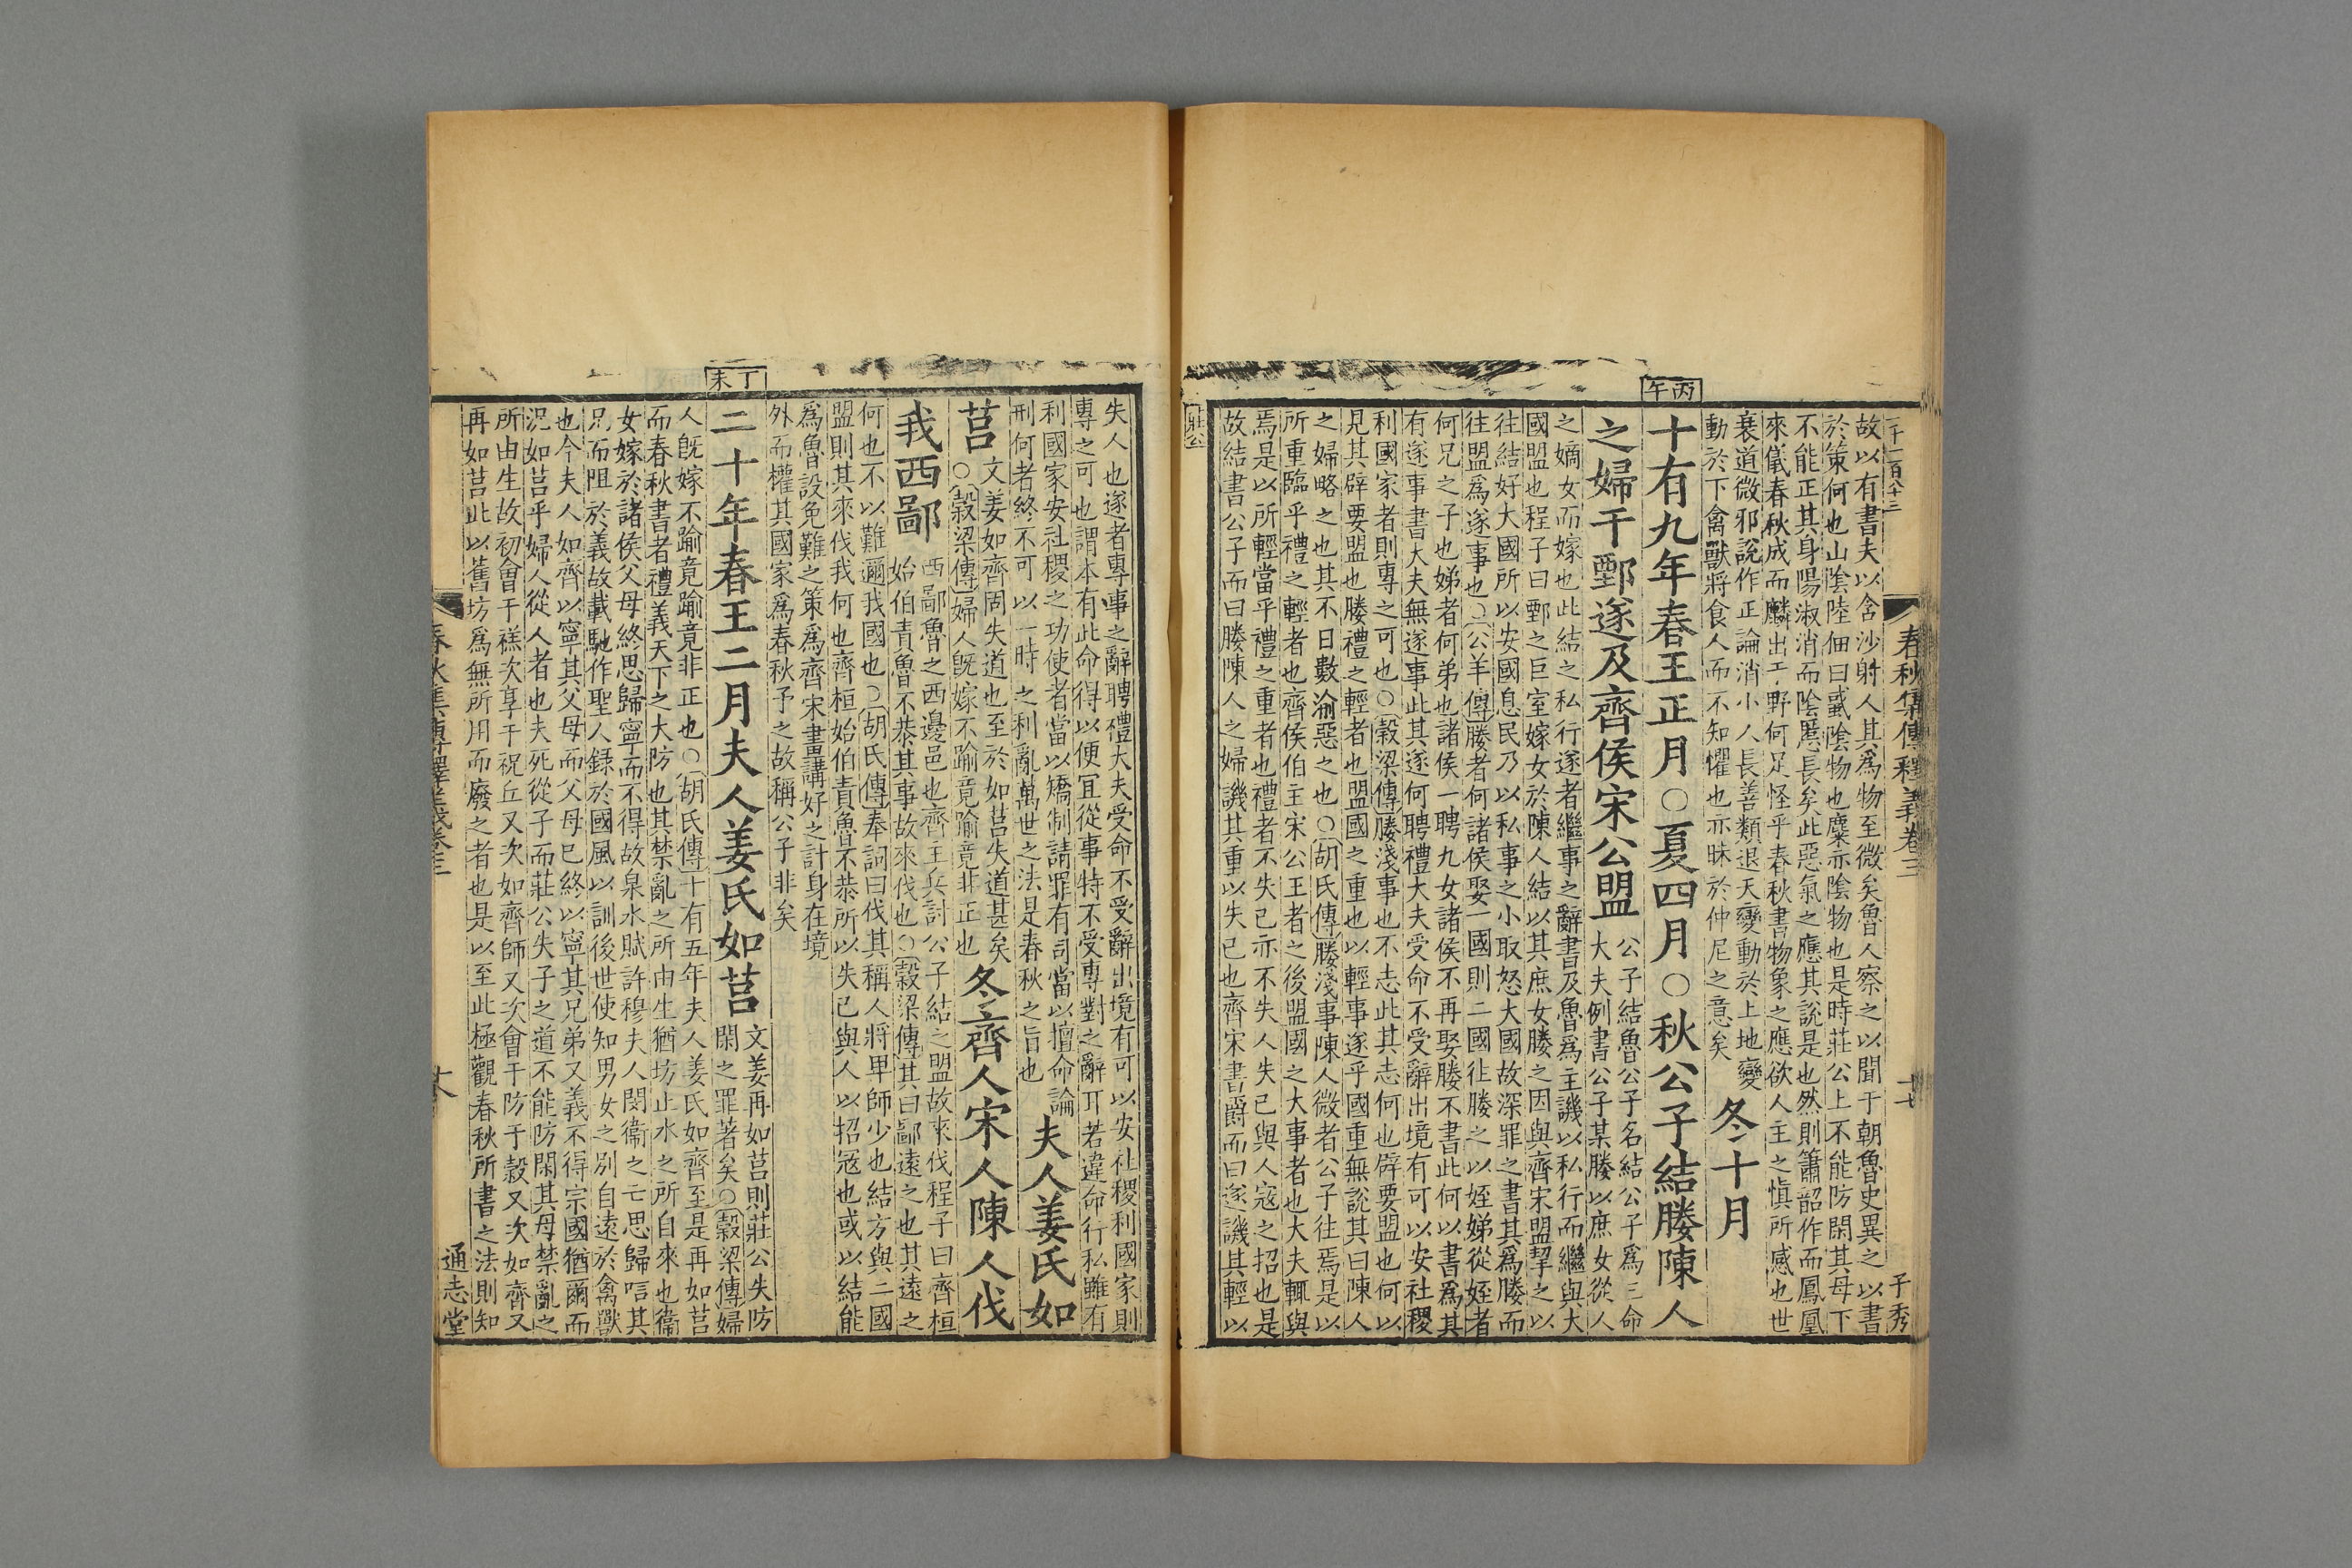 二千一百八十三
春秋集傳釋義卷三
十七
子秀
故以有書夫以含沙射人其爲物至微矣魯人察之以聞于朝魯史異之以書
於策何也山陰陸佃曰蜮陰物也麋亦陰物也是時莊公上不能防閑其母下
不能正其身陽淑消而陰慝長矣此惡氣之應其說是也然則簫韶作而鳳凰
來儀春秋成而麟出于野何足怪乎春秋書物象之應欲人主之慎所感也世
衰道微邪說作正論消小人長善類退天變動於上地變
動於下禽獸將食人而不知懼也亦昧於仲尼之意矣
冬十月
丙午
十有九年春王正月○夏四月○秋公子結媵陳人
之婦于鄄遂及齊侯宋公盟
公子結魯公子名結公子爲三命
大夫例書公子某媵以庶女從人
之嫡女而嫁也此結之私行遂者繼事之辭書及魯爲主譏以私行而繼與大
國盟也程子曰鄄之巨室嫁女於陳人結以其庶女媵之因與齊宋盟挈之以
往結好大國所以安國息民乃以私事之小取怒大國故深罪之書其爲媵而
往盟爲遂事也○公羊傳媵者何諸侯娶一國則二國往媵之以姪娣從姪者
何兄之子也娣者何弟也諸侯一聘九女諸侯不再娶媵不書此何以書爲其
有遂事書大夫無遂事此其遂何聘禮大夫受命不受辭出境有可以安社稷
利國家者則專之可也○穀梁傳媵淺事也不志此其志何也辟要盟也何以
見其辟要盟也媵禮之輕者也盟國之重也以輕事遂乎國重無說其曰陳人
之婦略之也其不日數渝惡之也○胡氏傳媵淺事陳人微者公子往焉是以
所重臨乎禮之輕者也齊侯伯主宋公王者之後盟國之大事者也大夫輒與
焉是以所輕當乎禮之重者也禮者不失己亦不失人失己與人寇之招也是
故結書公子而曰媵陳人之婦譏其重以失己也齊宋書爵而曰遂譏其輕以
莊公
失人也遂者專事之辭聘禮大夫受命不受辭出境有可以安社稷利國家則
專之可也謂本有此命得以便宜從事特不受專對之辭耳若違命行私雖有
利國家安社稷之功使者當以矯制請罪有司當以擅命論
刑何者終不可以一時之利亂萬世之法是春秋之旨也
夫人姜氏如
莒
文姜如齊固失道也至於如莒失道甚矣
○穀梁傳婦人既嫁不踰竟踰竟非正也
冬齊人宋人陳人伐
我西鄙
西鄙魯之西邊邑也齊主兵討公子結之盟故來伐程子曰齊桓
始伯責魯不恭其事故來伐也○穀梁傳其曰鄙遠之也其遠之
何也不以難邇我國也○胡氏傳奉詞曰伐其稱人將卑師少也結方與二國
盟則其來伐我何也齊桓始伯責魯不恭所以失已與人以招寇也或以結能
爲魯設免難之策爲齊宋畫講好之計身在境
外而權其國家爲春秋予之故稱公子非矣
丁未
二十年春王二月夫人姜氏如莒
文姜再如莒則莊公失防
閑之罪著矣○穀梁傳婦
人既嫁不踰竟踰竟非正也○胡氏傳十有五年夫人姜氏如齊至是再如莒
而春秋書者禮義天下之大防也其禁亂之所由生猶坊止水之所自來也衞
女嫁於諸侯父母終思歸寧而不得故泉水賦許穆夫人閔衞之亡思歸唁其
兄而阻於義故載馳作聖人錄於國風以訓後世使知男女之別自遠於禽獸
也今夫人如齊以寧其父母而父母已終以寧其兄弟又義不得宗國猶爾而
況如莒乎婦人從人者也夫死從子而莊公失子之道不能防閑其母禁亂之
所由生故初會于禚次享于祝丘又次如齊師又次會于防于穀又次如齊又
再如莒此以舊坊爲無所用而廢之者也是以至此極觀春秋所書之法則知
春秋集傳釋義卷三
十八
通志堂